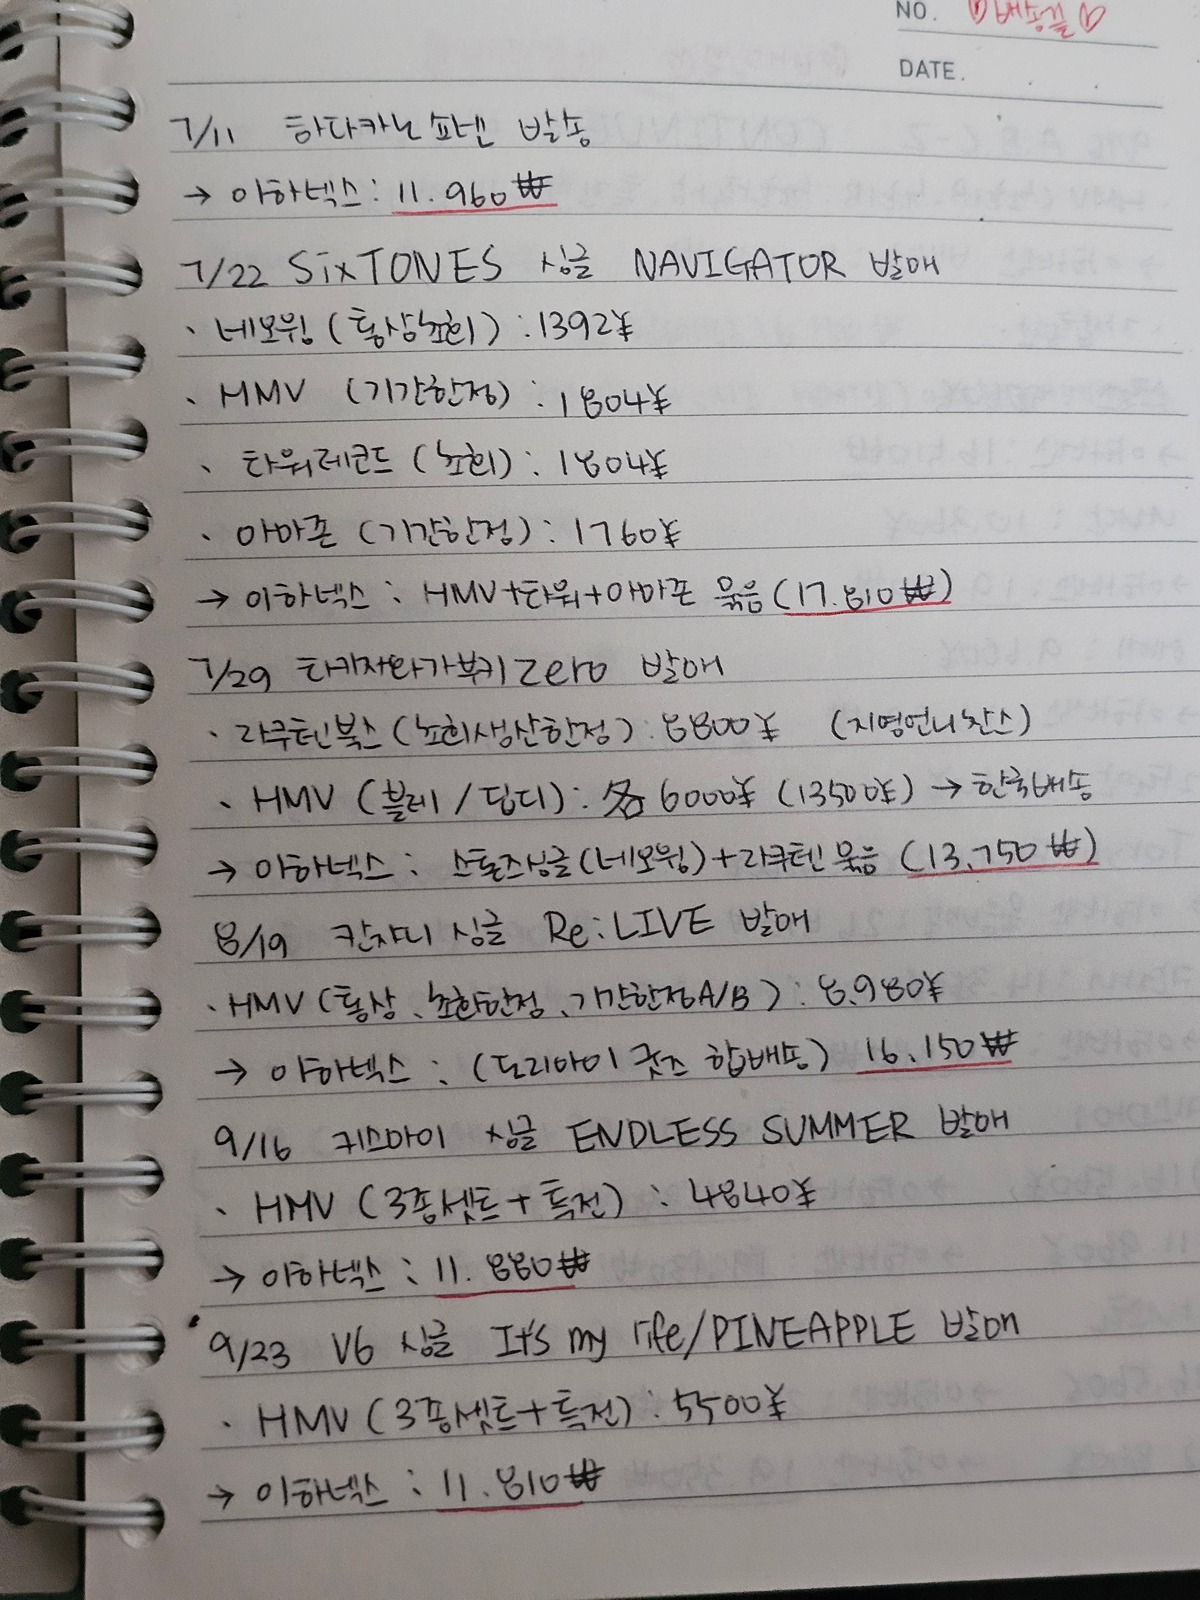 NO.
DATE.
7/11 하다카노쇼넨 발송
→ 이하넥스: 11.960₩
7/22 SixTONES 싱글 NAVIGATOR 발매
· 네오윙 (통상초회) : 1392¥
· HMV (기간한정) : 1804¥
· 타워레코드 (초회) : 1804¥
· 아마존 (기간한정) : 1760¥
→ 이하넥스 : HMV+타워+아마존 묶음 (17.810₩)
7/29 타키자와가부키 zero 발매
· 라쿠텐북스 (초회생산한정) : 8800¥ (지영언니찬스)
· HMV (블레/딥디) : 各 6000¥ (13500¥) → 한국배송
→ 이하넥스 : 스톤즈싱글(네오윙)+라쿠텐 묶음 (13.750₩)
8/19 칸쟈니 싱글 Re:LIVE 발매
· HMV (통상、초회한정、기간한정A/B) : 8.980¥
→ 이하넥스 : (도리아이 굿즈 합배송) 16.150₩
9/16 키스마이 싱글 ENDLESS SUMMER 발매
· HMV (3종셋트+특전) : 4840¥
→ 이하넥스 : 11.880₩
9/23 V6 싱글 It's my life/PINEAPPLE 발매
· HMV (3종셋트+특전) : 5500¥
→ 이하넥스 : 11.810₩